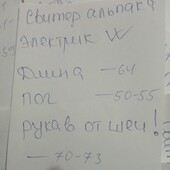 Свитер альпака
электрик W
Длина — 64
ПОГ — 50-55
рукав от шеи!
— 70-73